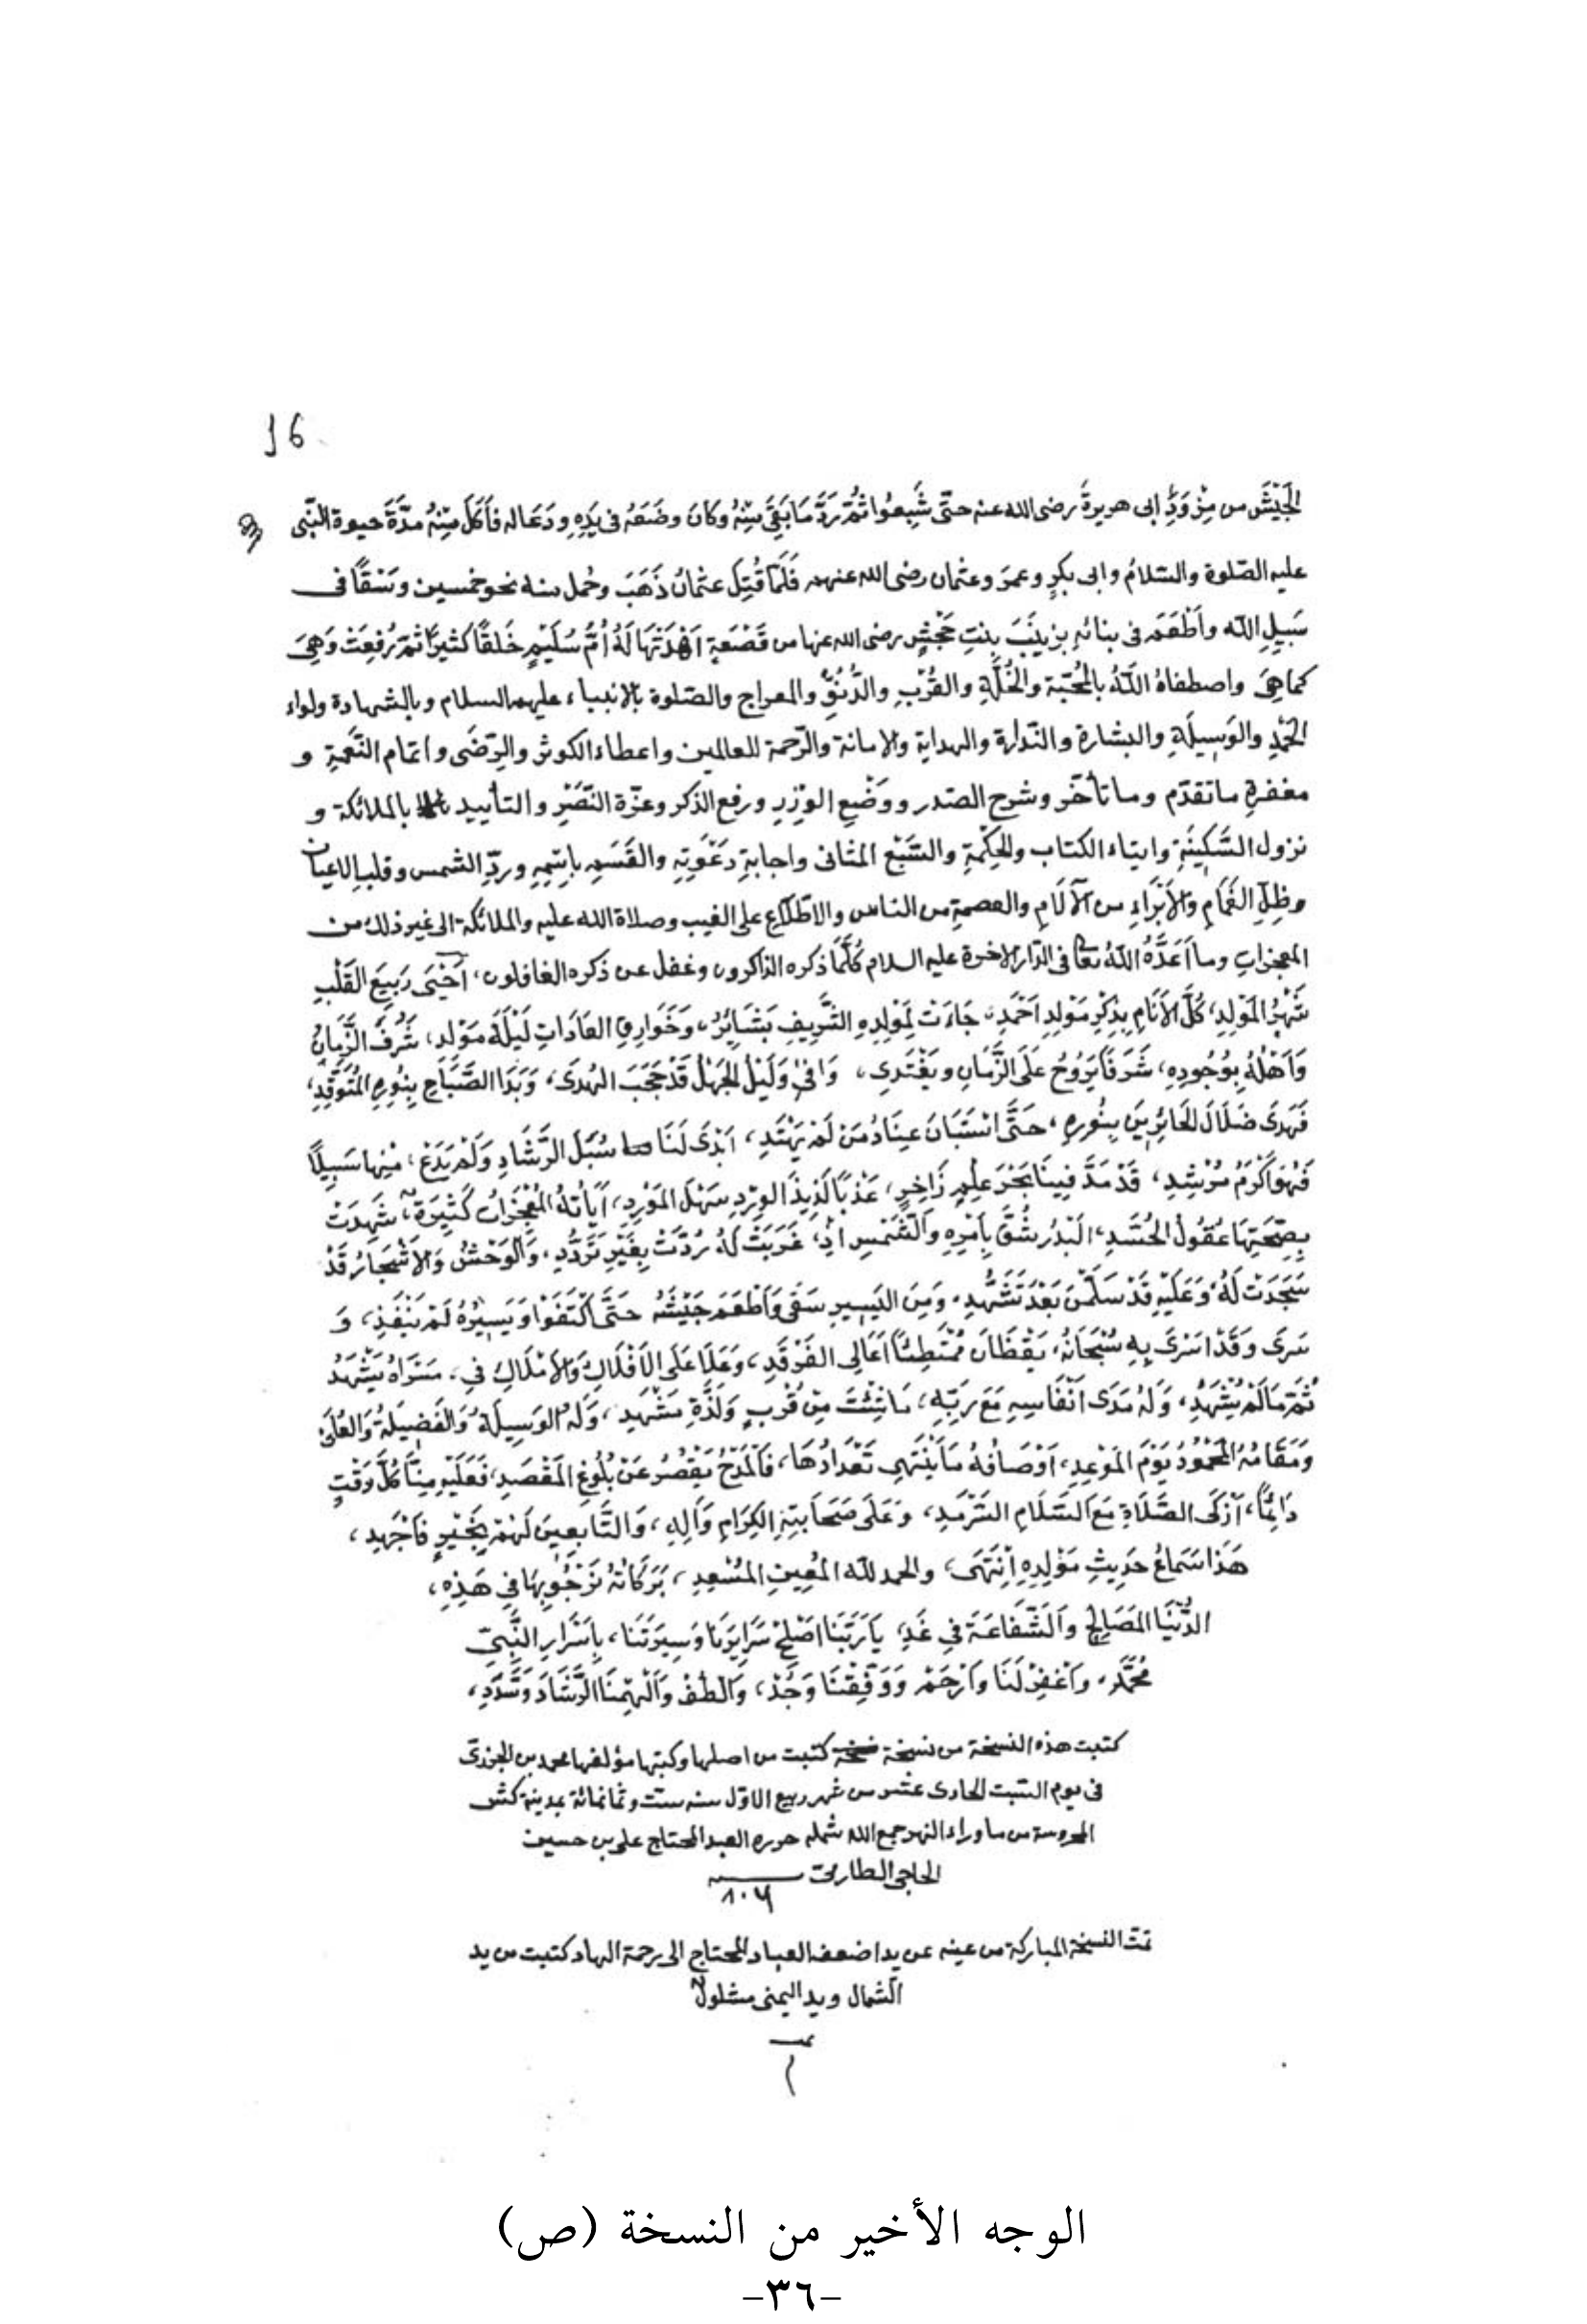 16
الجَيْشَ من مِزْوَدِ ابى هريرةَ رضى الله عنه حتّى شَبِعُوا ثُمَّ رَدَّ مَا بَقِىَ مِنْهُ وكان وضَعَهُ فى يَدِهِ ودَعَا له فأَكَلَ مِنْهُ مدّةَ حيوة النّبى
عليه الصّلوة والسّلامُ وابى بكرٍ وعمرَ وعثمان رضى الله عنهم فَلَمَّا قُتِلَ عثمانُ ذَهَبَ وحُمل منه نحو خمسين وَسْقًا فى
سَبِيلِ الله وأَطْعَمَ فى بنائِهِ بزينَبَ بِنتِ جَحْشٍ رضى الله عنها من قَصْعَةٍ اَهْدَتْهَا لَهُ اُمُّ سُلَيْمٍ خَلقًا كثيرًا ثمّ رُفِعَتْ وَهِىَ
كماهِىَ واصطفاهُ اللّٰهُ بالمحبّة والخُلَّةِ والقُرْبِ والدُّنُوِّ والمعراج والصّلوة بالانبياء عليهم السلام وبالشهادة ولواء
الحَمْدِ والوَسِيلَةِ والبشارة والنّذارة والهداية والامانة والرّحمة للعالمين واعطاء الكوثر والرّضَى واتمام النّعْمَةِ و
مغفرةِ ما تقدّم وما تأخّر وشرح الصّدر ووَضْعِ الوِزْرِ ورفع الذكر وعزّة النّصْرِ والتأييد بالملائكة و
نزول السَّكِينَةِ وايتاء الكتاب والحِكْمَةِ والسَّبْعِ المثانى واجابةِ دَعْوَتِهِ والقَسَمِ باسْمِهِ وردِّ الشمس وقلب الاعيان
وظِلِّ الغَمَامِ والاِبْرَاءِ من الآلَامِ والعصمةِ من الناس والاطّلَاعِ على الغيب وصلاة الله عليه والملائكة الى غير ذلك من
المعجزات وما اَعَدَّهُ اللّٰهُ تعا فى الدّار الاخرة عليه السلام كُلَّمَا ذكره الذاكرون وغفل عن ذكره الغافلون، اَحْيَى رَبِيعَ القَلْبِ
شَهْرُ المَوْلِدِ، كُلَّ الأَنَامِ بِذِكْرِ مَوْلِدِ اَحْمَدِ، جَاءَتْ لِمَوْلِدِهِ الشَّرِيفِ بَشَائِرُ، وَخَوَارِقِ العَادَاتِ لَيْلَةَ مَوْلِدِ، شَرُفَ الزَّمَانُ
وَاَهْلُهُ بِوُجُودِهِ، شَرَفًا يَرُوحُ عَلَى الزَّمَانِ وَيَغْتَدِى، وَافَىٰ وَلَيْلُ الجَهْلِ قَدْ حَجَبَ الهُدَى، وَبَدَا الصَّبَاحِ بِنُورِهِ المُتَوَقِّدِ،
فَهَدَى ضَلَالَ الحَائِرِينَ بِنُورِهِ، حَتَّى اسْتَبَانَ عِنَادُ مَنْ لَمْ يَهْتَدِ، اَبْدَى لَنَا سُبُلَ الرَّشَادِ وَلَمْ يَدَعْ، مِنْهَا سَبِيلًا
فَهْوَ اَكْرَمُ مُرْشِدِ، قَدْ مَدَّ فِينَا بَحْرَ عِلْمٍ زَاخِرٍ، عَذْبًا لَذِيذَ الوِرْدِ سَهْلَ المَوْرِدِ، آيَاتُهُ المُعْجِزَاتُ كَثِيرَةٌ، شَهِدَتْ
بِصِحَّتِهَا عُقُولُ الحُسَّدِ، البَدْرُ شُقَّ بِاَمْرِهِ وَالشَّمْسِ اذْ، غَرَبَتْ لَهُ رُدَّتْ بِغَيْرِ تَرَدُّدِ، وَالوَحْشُ وَالاَشْجَارُ قَدْ
سَجَدَتْ لَهُ، وَعَلَيْهِ قَدْ سَلَّمْنَ بَعْدَ تَشَهُّدِ، وَمِنَ اليَسِيرِ سَقَى وَاَطْعَمَ جَيْشَهُ حَتَّى اكْتَفَوْا وَيَسِيْرُهُ لَمْ يَنْفَدِ، وَ
سَرَى وَقَدْ اَسْرَى بِهِ سُبْحَانَهُ، يَقْظَانَ مُمْتَطِئًا اَعَالِى الفَرْقَدِ، وَعَلَا عَلَى الاَفْلَاكِ وَالاَمْلَاكِ فِى، مَسْرَاهُ يَشْهَدُ
ثَمَّ مَا لَمْ يُشْهَدِ، وَلَهُ مَدَى اَنْفَاسِهِ مَعَ رَبِّهِ، مَا شِئْتَ مِنْ قُرْبٍ وَلَذَّةِ مَشْهَدِ، وَلَهُ الوَسِيلَةُ وَالفَضِيلَةُ وَالعُلَىٰ
وَمَقَامُهُ المَحْمُودُ يَوْمَ المَوْعِدِ، اَوْصَافُهُ مَا يَنْتَهِى تَعْدَادُهَا، فَالمَدْحُ يَقْصُرُ عَنْ بُلُوغِ المَقْصَدِ، فَعَلَيْهِ مِنَّا كُلَّ وَقْتٍ
دَائِمًا، اَزْكَى الصَّلَاةِ مَعَ السَّلَامِ السَّرْمَدِ، وَعَلَى صَحَابَتِهِ الكِرَامِ وَآلِهِ، وَالتَّابِعِينَ لَهُمْ بِخَيْرٍ فَاجْهَدِ،
هَذَا سَمَاعُ حَدِيثِ مَوْلِدِهِ اِنْتَهَى، والحمد لله المُعِينِ المُسْعِدِ، بَرَكَاتُهُ نَرْجُو بِهَا فِى هَذِهِ،
الدُّنْيَا المَصَالِحِ وَالشَّفَاعَةَ فِى غَدِ، يَا رَبَّنَا اصْلِحْ سَرَايِرَنَا وَسِيرَتَنَا، بِاَسْرَارِ النَّبِىِّ
مُحَمَّدِ، وَاغْفِرْ لَنَا وَارْحَمْ وَوَفِّقْنَا وَجُدْ، وَالْطُفْ وَاَلْهِمْنَا الرَّشَادَ وَسَدِّدِ،
كتبت هذه النسخة من نسخة كتبت من اصلها وكتبها مؤلفها محمد بن الجزرى
فى يوم السّبت الحادى عشر من شهر ربيع الاوّل سنه ستّ وثمانمائة بمدينة كش
المحروسة من ما وراء النهر جمع الله شمله حرره العبد المحتاج على بن حسين
الحاجى الطارمى
٨٠٦
تمت النسخة المباركة من عينه عن يد اضعف العباد المحتاج الى رحمة الهاد كتبت من يد
الشمال ويد اليمنى مشلولٌ
الوجه الأخير من النسخة (ص)
-٣٦-